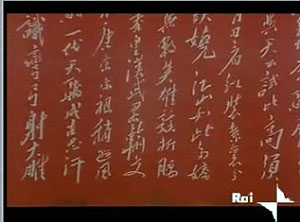 天公試比高須
日看紅裝素裹
嬈江山如此多嬌
無數英雄競折腰
皇漢武略輸文
唐宗宋祖稍遜風
一代天驕成吉思汗
識彎弓射大雕
Rai